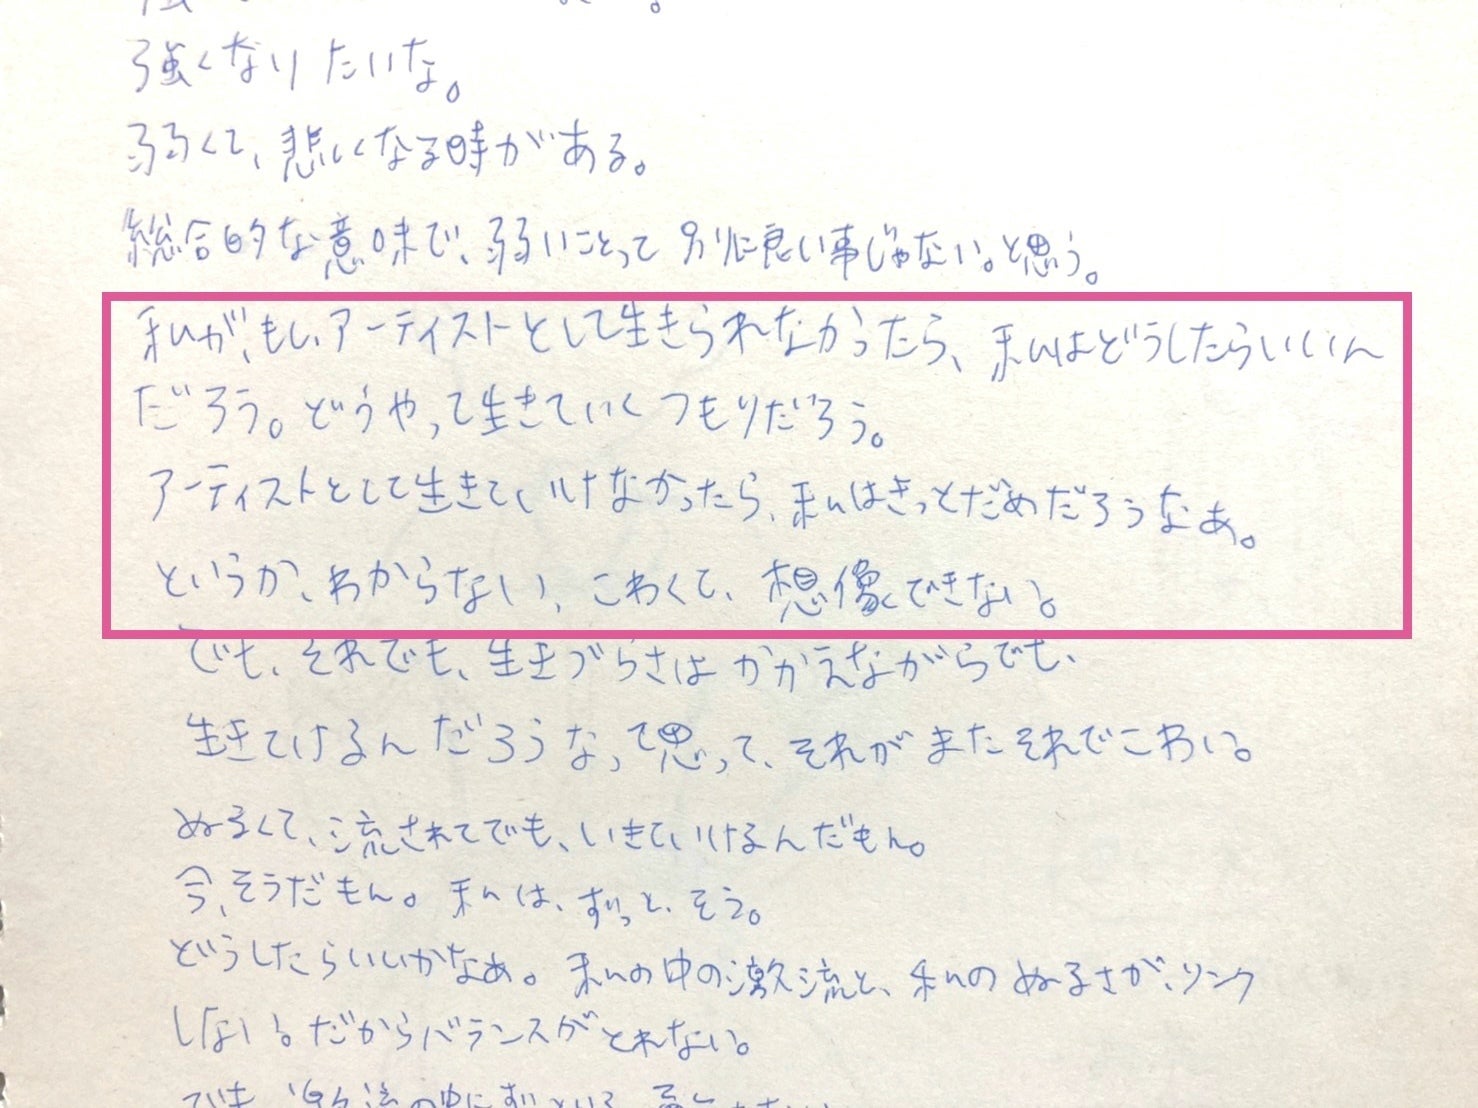 強くなりたいな。
弱くて、悲しくなる時がある。
総合的な意味で、弱いことって別に良い事じゃない。と思う。
私が、もし、アーティストとして生きられなかったら、私はどうしたらいいん
だろう。どうやって生きていくつもりだろう。
アーティストとして生きていけなかったら、私はきっとだめだろうなぁ。
というか、わからない、こわくて、想像できない。
でも、それでも、生きづらさはかかえながらでも、
生きてけるんだろうなって思って、それがまたそれでこわい。
ぬるくて、流されてでも、いきていけるんだもん。
今、そうだもん。私は、ずっと、そう。
どうしたらいいかなぁ。私の中の激流と、私のぬるさが、リンク
しない。だからバランスがとれない。